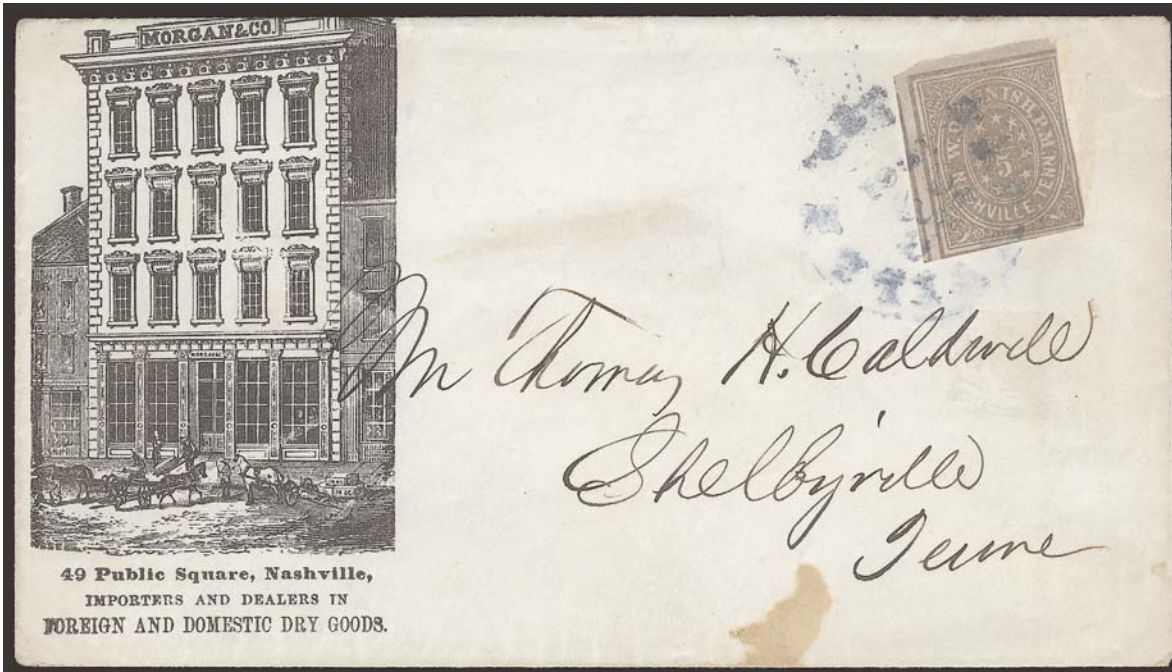 MORGAN & CO.
49 Public Square, Nashville,
IMPORTERS AND DEALERS IN
FOREIGN AND DOMESTIC DRY GOODS.
P.M.
5
NASHVILLE, TENN
Mr Thomas H. Caldwell
Shelbyville
Tenne